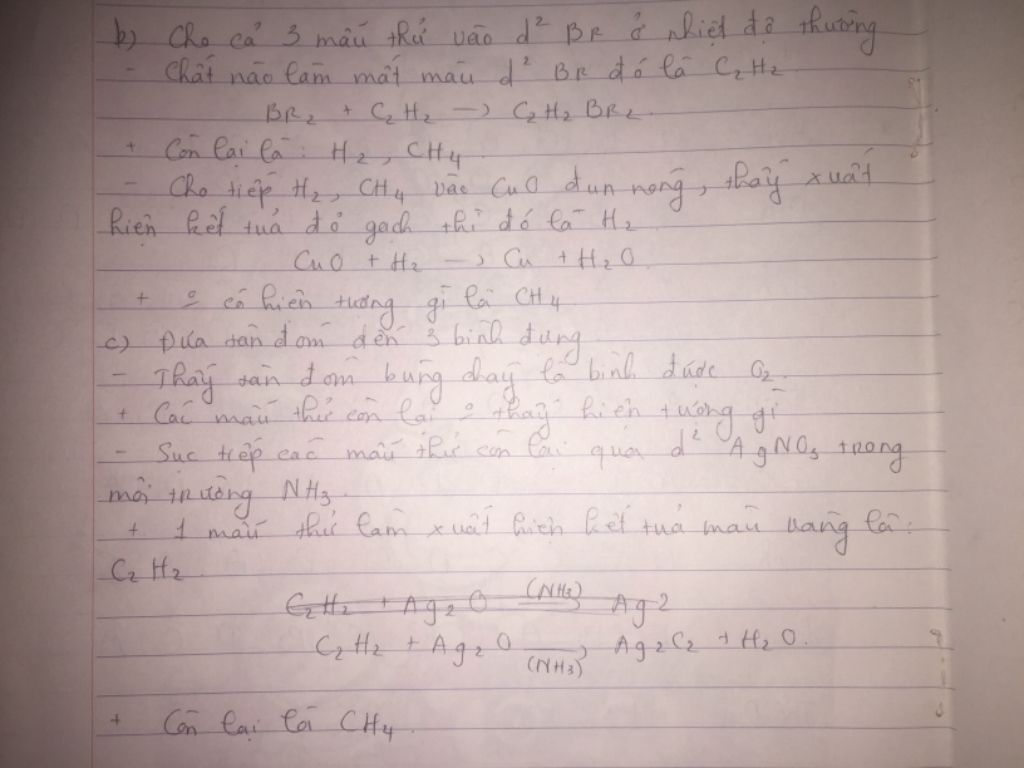 b) Cho cả 3 mẫu thử vào d² BR ở nhiệt độ thường
- Chất nào làm mất màu d² BR đó là C₂H₂
BR₂ + C₂H₂ → C₂H₂BR₂
+ Còn lại là: H₂, CH₄
- Cho tiếp H₂, CH₄ vào CuO đun nóng, thấy xuất
hiện kết tủa đỏ gạch thì đó là H₂
CuO + H₂ → Cu + H₂O
+ o có hiện tượng gì là CH₄
c) Đưa tàn đóm đến 3 bình đựng
- Thấy tàn đóm bùng cháy là bình được O₂.
+ Các mẫu thử còn lại o thấy hiện tượng gì
- Sục tiếp các mẫu thử còn lại qua d² AgNO₃ trong
môi trường NH₃.
+ 1 mẫu thử làm xuất hiện kết tủa màu vàng là:
C₂H₂
C₂H₂ + Ag₂O (NH₃) Ag2
C₂H₂ + Ag₂O → (NH₃) Ag₂C₂ + H₂O.
+ Còn lại là CH₄